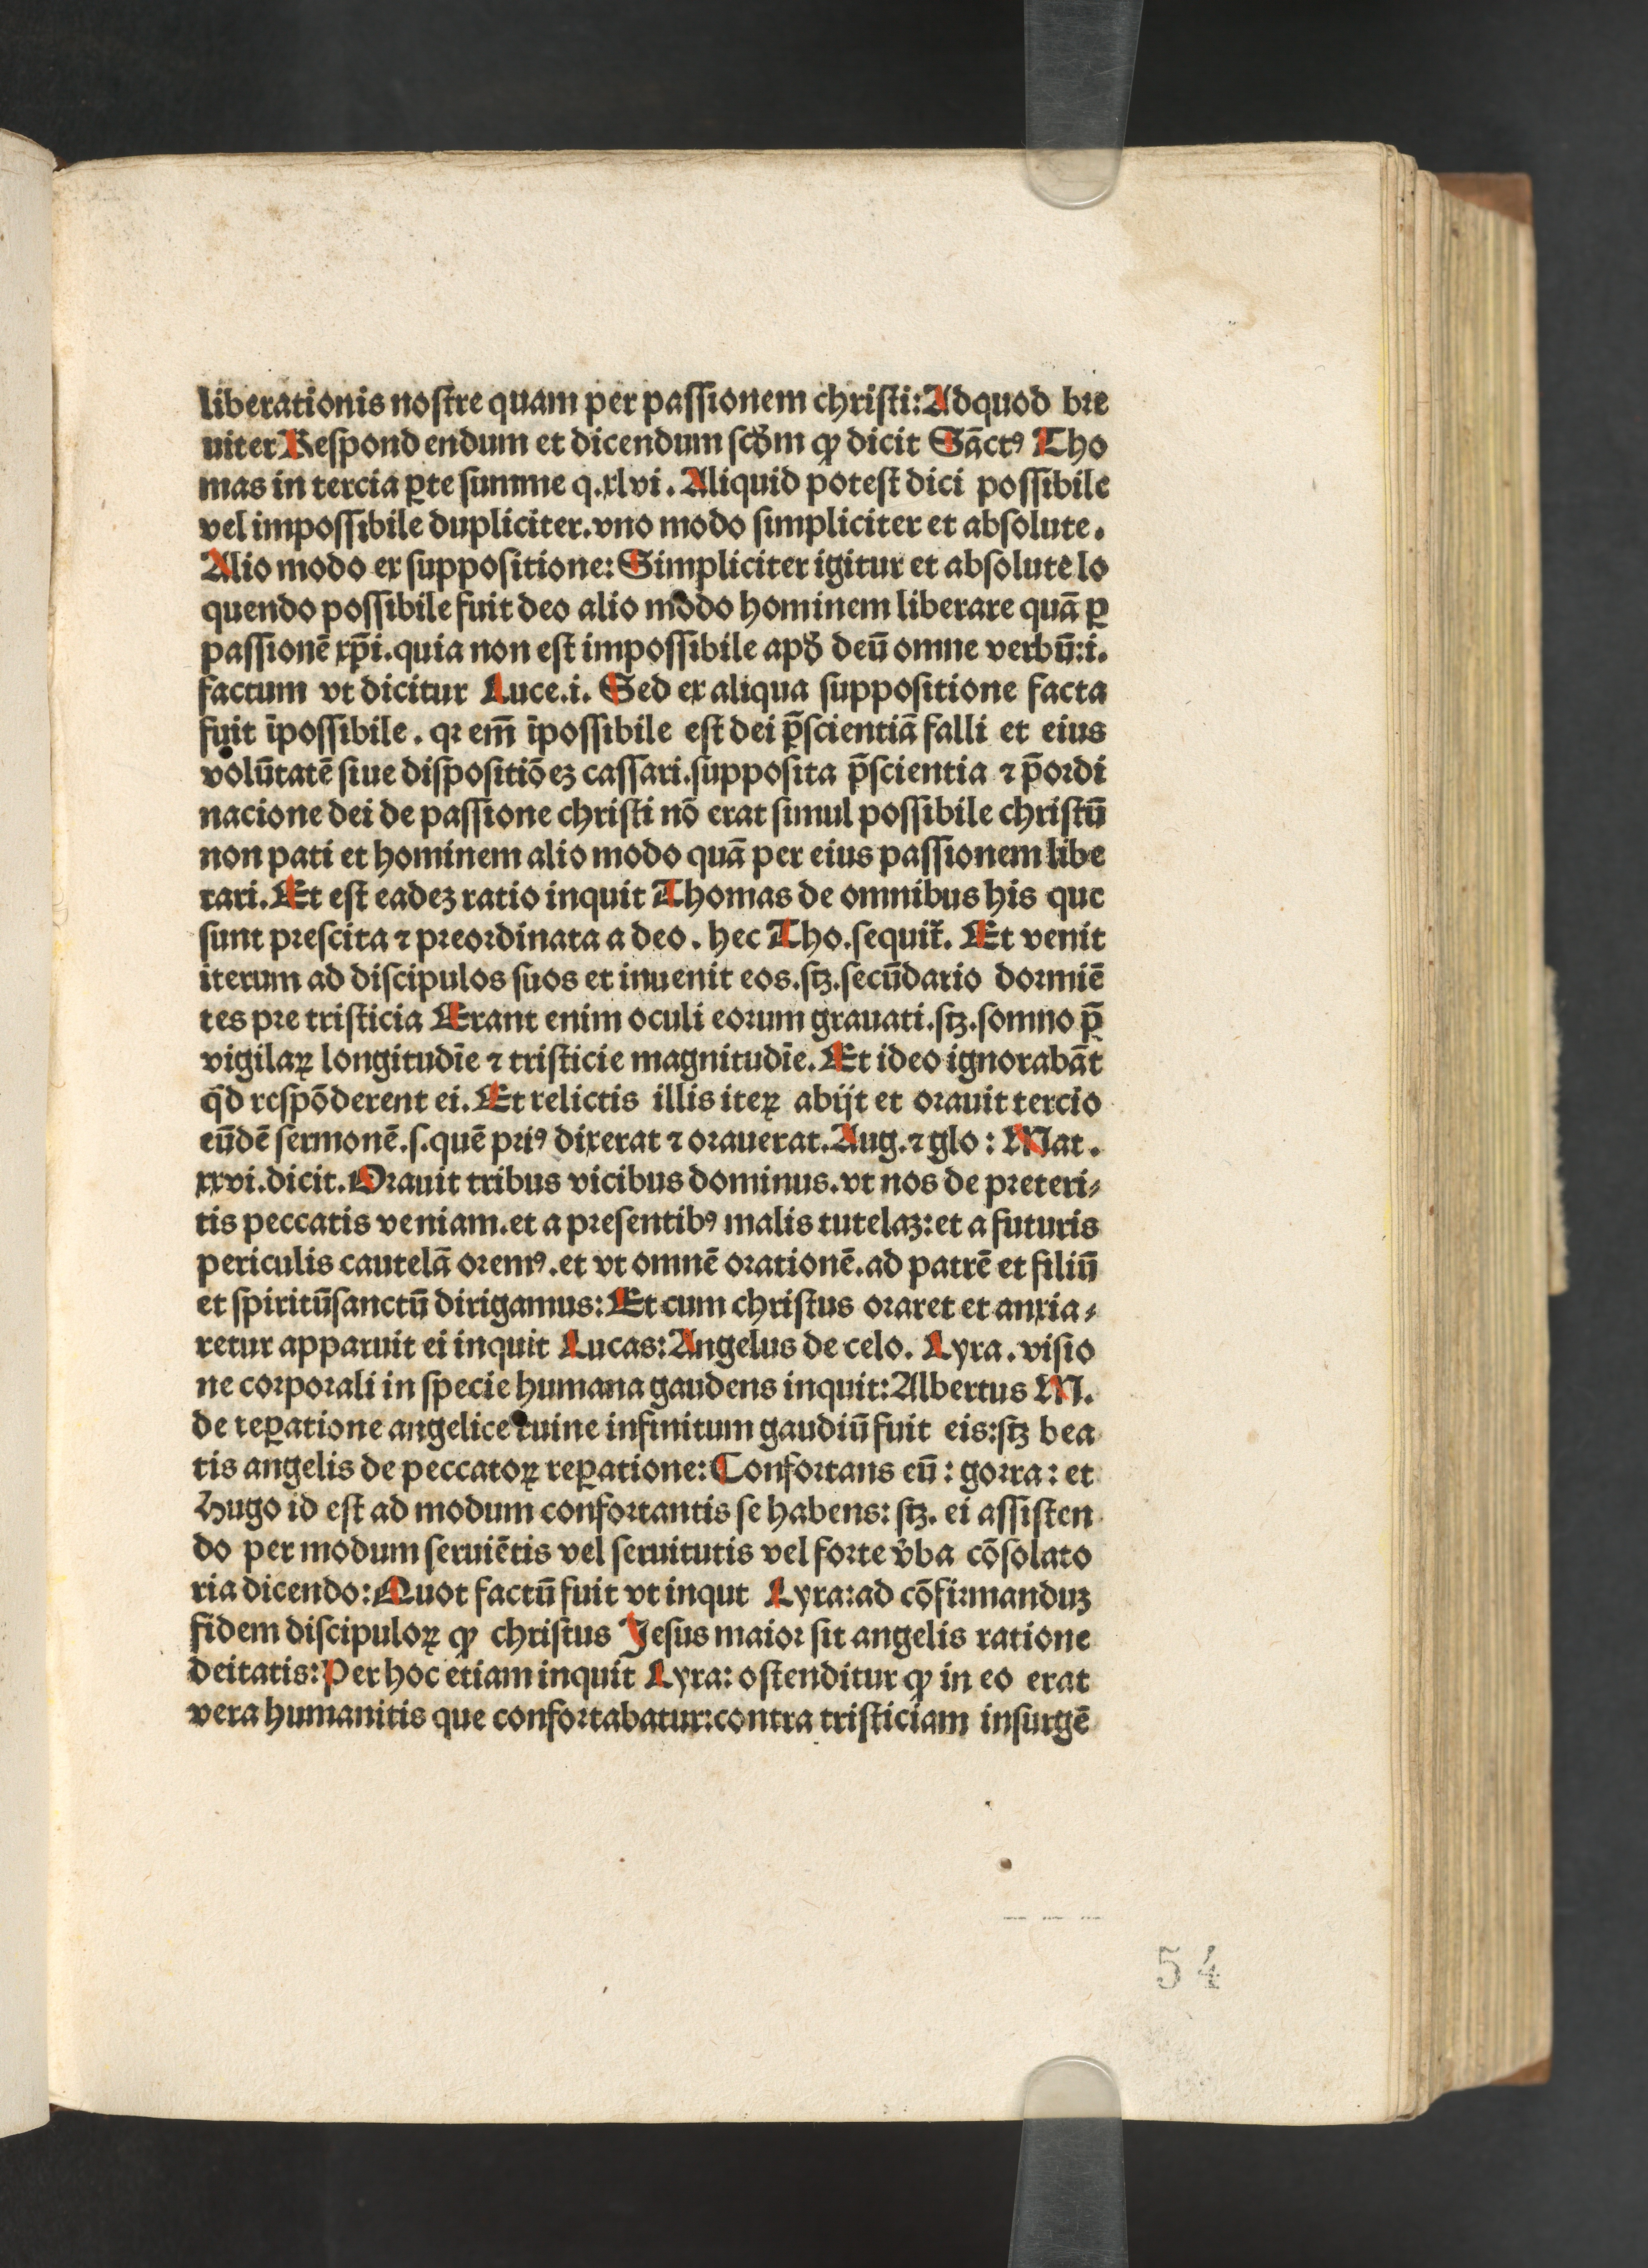 liberationis nostre quam per passionem christi: Adquod bre
uiter Respond endum et dicendum scðm ꝙ dicit Sāctꝰ Tho
mas in tercia ꝑte summe q. xlvi. Aliquid potest dici possibile
vel impossibile dupliciter. vno modo simpliciter et absolute.
Alio modo ex suppositione: Simpliciter igitur et absolute lo
quendo possibile fuit deo alio modo hominem liberare quā ꝑ
passionē xp̄i. quia non est impossibile apð deū omne verbū: i.
factum vt dicitur Luce. i. Sed ex aliqua suppositione facta
fuit īpossibile. qꝛ em̄ īpossibile est dei p̄scientiā falli et eius
volūtatē siue dispositiōeꝫ cassari. supposita p̄scientia ⁊ p̄ordi
nacione dei de passione christi nō erat simul possibile christū
non pati et hominem alio modo quā per eius passionem libe
rari. Et est eadeꝫ ratio inquit Thomas de omnibus his que
sunt prescita ⁊ preordinata a deo. hec Tho. sequit̃. Et venit
iterum ad discipulos suos et inuenit eos. stꝫ. secūdario dormiē
tes pre tristicia Erant enim oculi eorum grauati. stꝫ. somno p̄
vigilaꝝ longitudīe ⁊ tristicie magnitudīe. Et ideo ignorabāt
qͥd respōderent ei. Et relictis illis iteꝝ abijt et orauit tercio
eūdē sermonē. s. quē priꝰ dixerat ⁊ orauerat. Aug. ⁊ glo: Mat.
xxvi. dicit. Orauit tribus vicibus dominus. vt nos de preteri⸗
tis peccatis veniam. et a presentibꝰ malis tutelaꝫ: et a futuris
periculis cautelā oremꝰ. et vt omnē orationē. ad patrē et filiū
et spiritūsanctū dirigamus: Et cum christus oraret et anxia⸗
retur apparuit ei inquit Lucas: Angelus de celo. Lyra. visio
ne corporali in specie humana gaudens inquit: Albertus M.
de reꝑatione angelice ruine infinitum gaudiū fuit eis: stꝫ bea
tis angelis de peccatoꝝ reꝑatione: Confortans eū: gorra: et
Hugo id est ad modum confortantis se habens: stꝫ. ei assisten
do per modum seruiētis vel seruitutis vel forte v̓ba cōsolato
ria dicendo: Quot factū fuit vt inqut Lyra: ad cōfirmanduꝫ
fidem discipuloꝝ ꝙ christus Jesus maior sit angelis ratione
deitatis: Per hoc etiam inquit Lyra: ostenditur ꝙ in eo erat
vera humanitis que confortabatur: contra tristiciam insurgē
54